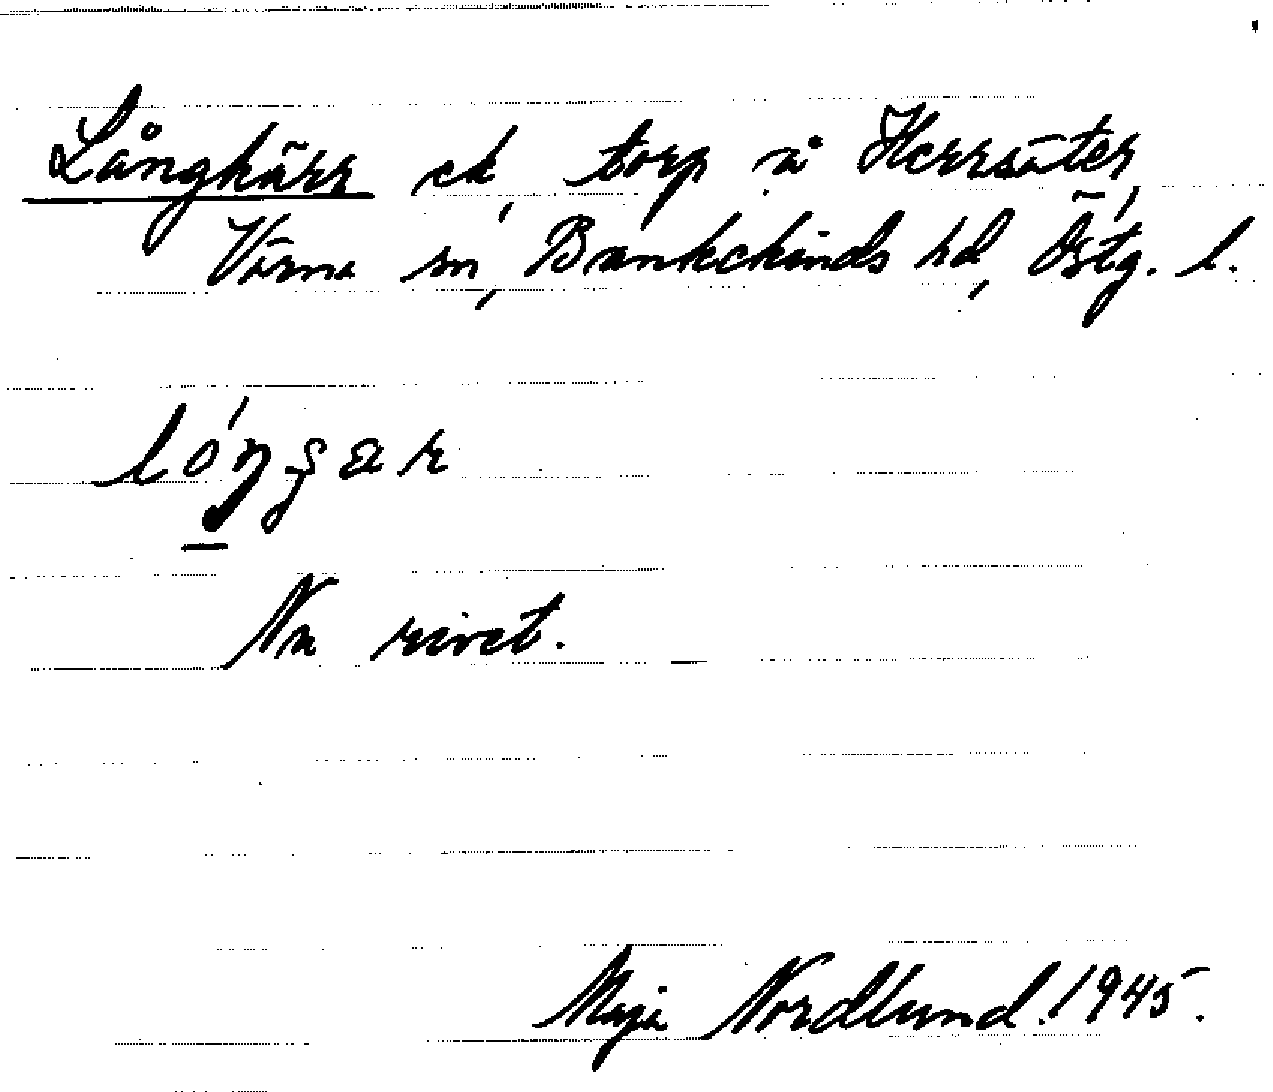 Långkärr ek, torp å Herrsäter,
Värna sn, Bankekinds hd, Östg. l.
Nu rivet.
Maja Nordlund. 1945.